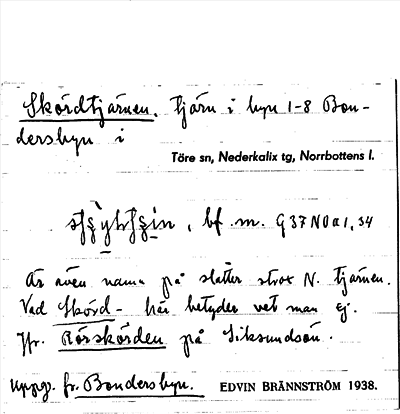 Skördtjärnen. tjärn i byn 1-8 Bon-
dersbyn i
Töre sn, Nederkalix tg, Norrbottens l.
, bf. m. G37N0a1,34
Är även namn på slåtter strax N. tjärnen.
Vad Skörd- här betyder vet man ej.
Jfr. Rörskörden på Siksundsön.
Uppg. fr. Bondersbyn. EDVIN BRÄNNSTRÖM 1938.